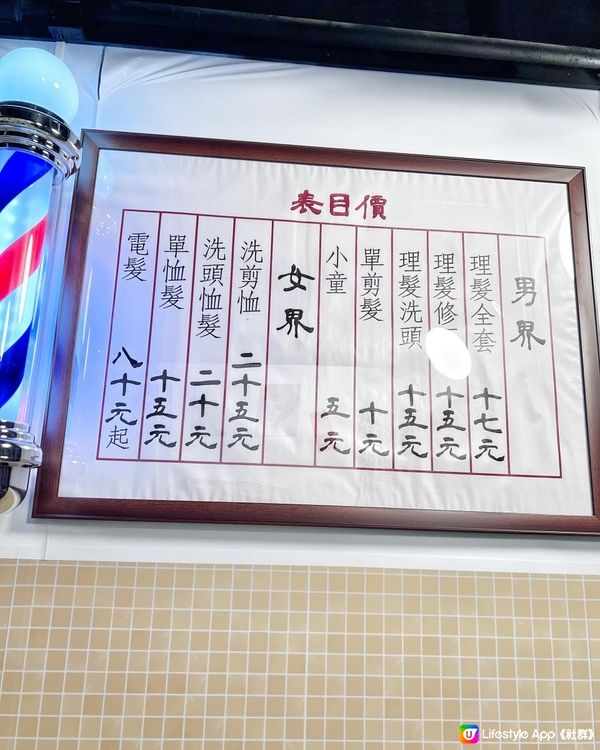 價目表
男界
理髮全套 十七元
理髮修 十五元
理髮洗頭 十五元
單剪髮 十元
小童 五元
女界
洗剪恤 二十五元
洗頭恤髮 二十元
單恤髮 十五元
電髮 八十元起
U Lifestyle App《社群》